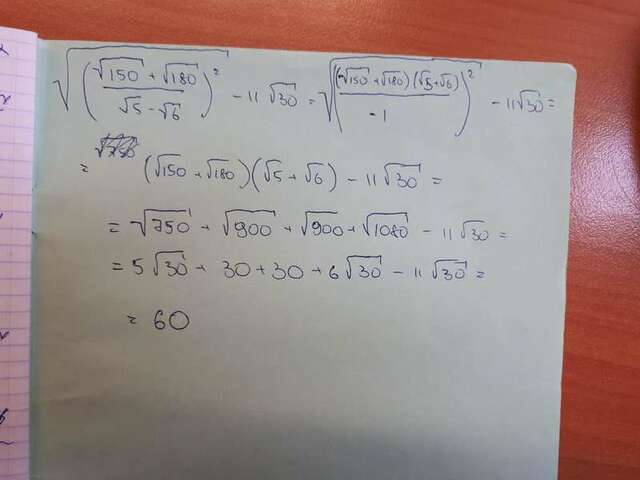 √((√150 + √180)/(√5 - √6))² - 11√30 = √((√150 + √180)(√5 + √6)/-1)² - 11√30 =
= (√150 + √180)(√5 + √6) - 11√30 =
= √750 + √900 + √900 + √1080 - 11√30 =
= 5√30 + 30 + 30 + 6√30 - 11√30 =
= 60